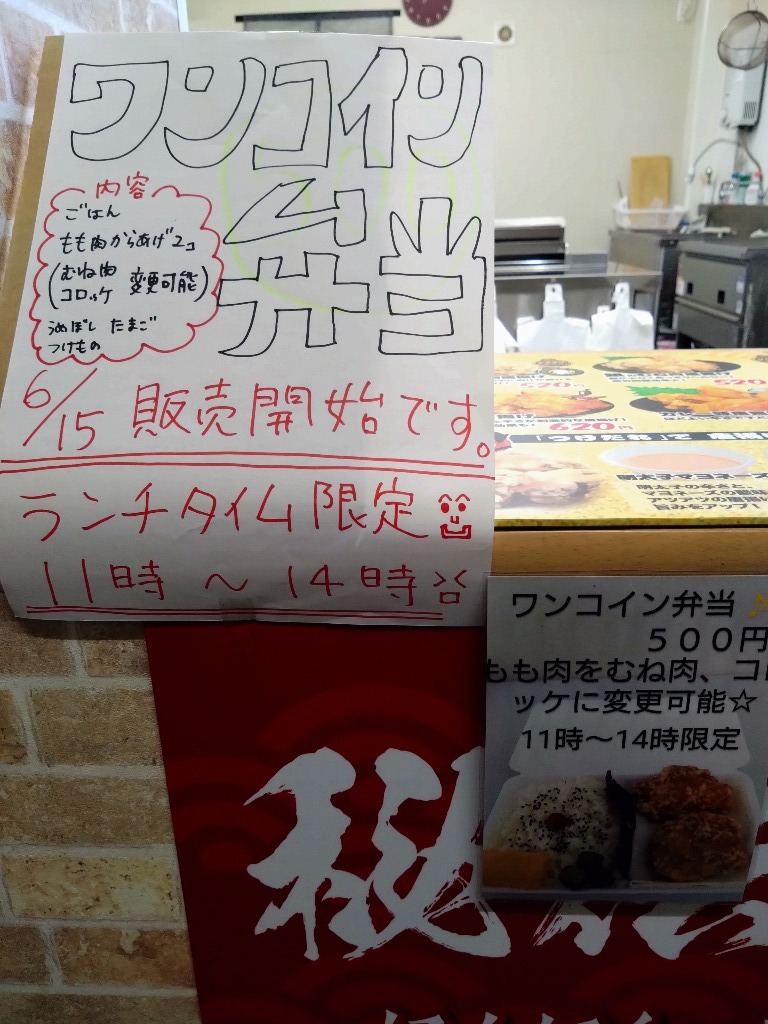 ワンコイン
弁当
内容
ごはん
もも肉からあげ2コ
(むね肉
コロッケ 変更可能)
うめぼし たまご
つけもの
6/15 販売開始です。
ランチタイム限定
11時〜14時
620円
520
「つけだれ」で
明太子マヨネーズ
旨みをアップ!
ワンコイン弁当♪
500円
もも肉をむね肉、コロ
ッケに変更可能☆
11時〜14時限定
秘